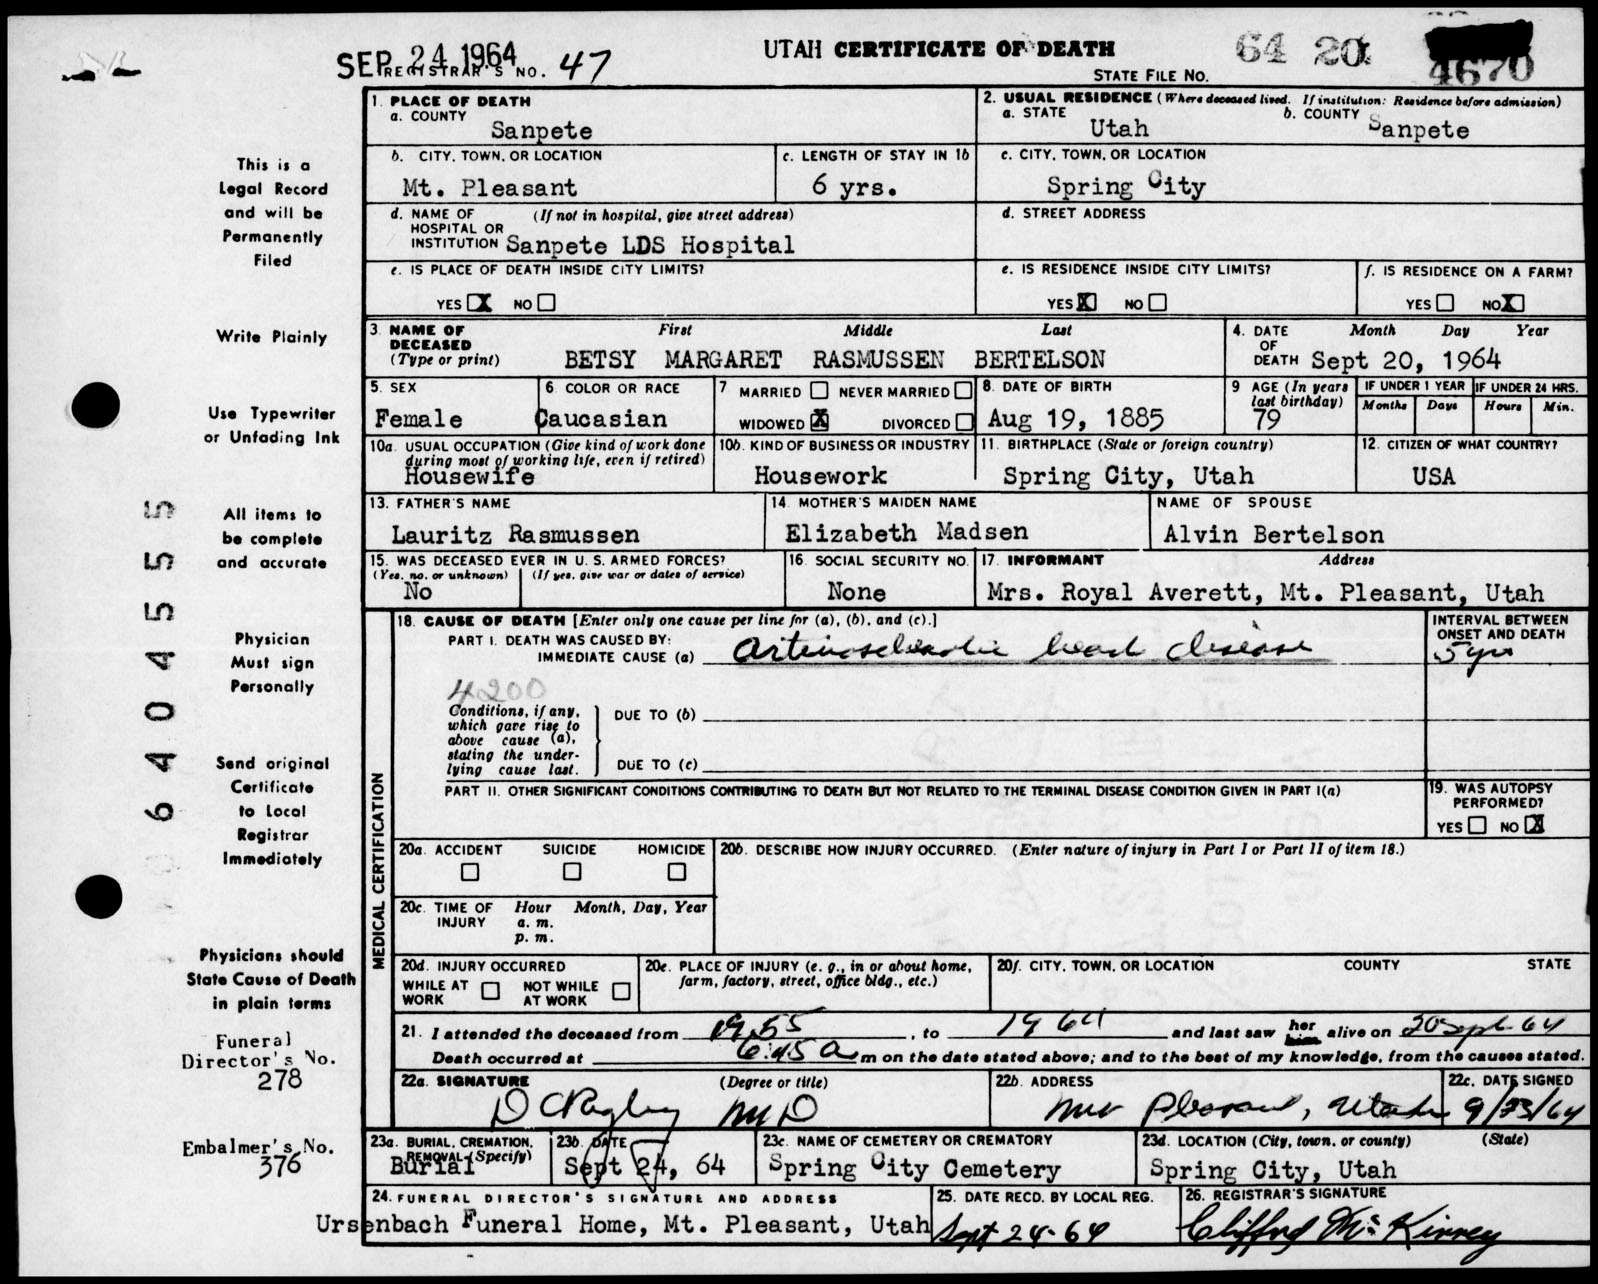 SEP 24 1964
REGISTRAR'S NO. 47
UTAH CERTIFICATE OF DEATH
64 20
STATE FILE NO.
4670
This is a
Legal Record
and will be
Permanently
Filed
Write Plainly
Use Typewriter
or Unfading Ink
All items to
be complete
and accurate
Physician
Must sign
Personally
Send original
Certificate
to Local
Registrar
Immediately
Physicians should
State Cause of Death
in plain terms
Funeral
Director's No.
278
Embalmer's No.
376
64045555
1. PLACE OF DEATH
a. COUNTY
Sanpete
2. USUAL RESIDENCE (Where deceased lived. If institution: Residence before admission)
a. STATE
Utah
b. COUNTY
Sanpete
b. CITY, TOWN, OR LOCATION
Mt. Pleasant
c. LENGTH OF STAY IN 1b
6 yrs.
c. CITY, TOWN, OR LOCATION
Spring City
d. NAME OF (If not in hospital, give street address)
HOSPITAL OR
INSTITUTION Sanpete LDS Hospital
d. STREET ADDRESS
e. IS PLACE OF DEATH INSIDE CITY LIMITS?
YES X NO
e. IS RESIDENCE INSIDE CITY LIMITS?
YES X NO
f. IS RESIDENCE ON A FARM?
YES NO X
3. NAME OF First Middle Last
DECEASED
(Type or print) BETSY MARGARET RASMUSSEN BERTELSON
4. DATE Month Day Year
OF
DEATH Sept 20, 1964
5. SEX
Female
6. COLOR OR RACE
Caucasian
7 MARRIED NEVER MARRIED
WIDOWED X DIVORCED
8. DATE OF BIRTH
Aug 19, 1885
9 AGE (In years
last birthday)
79
IF UNDER 1 YEAR
Months Days
IF UNDER 24 HRS.
Hours Min.
10a. USUAL OCCUPATION (Give kind of work done
during most of working life, even if retired)
Housewife
10b. KIND OF BUSINESS OR INDUSTRY
Housework
11. BIRTHPLACE (State or foreign country)
Spring City, Utah
12. CITIZEN OF WHAT COUNTRY?
USA
13. FATHER'S NAME
Lauritz Rasmussen
14. MOTHER'S MAIDEN NAME
Elizabeth Madsen
NAME OF SPOUSE
Alvin Bertelson
15. WAS DECEASED EVER IN U. S. ARMED FORCES?
(Yes, no, or unknown) (If yes, give war or dates of service)
No
16. SOCIAL SECURITY NO.
None
17. INFORMANT Address
Mrs. Royal Averett, Mt. Pleasant, Utah
MEDICAL CERTIFICATION
18. CAUSE OF DEATH [Enter only one cause per line for (a), (b), and (c).]
PART I. DEATH WAS CAUSED BY:
IMMEDIATE CAUSE (a) Arteriosclerotic heart disease
INTERVAL BETWEEN
ONSET AND DEATH
5 yrs
4200
Conditions, if any,
which gave rise to
above cause (a),
stating the under-
lying cause last.
DUE TO (b)
DUE TO (c)
PART II. OTHER SIGNIFICANT CONDITIONS CONTRIBUTING TO DEATH BUT NOT RELATED TO THE TERMINAL DISEASE CONDITION GIVEN IN PART I(a)
19. WAS AUTOPSY
PERFORMED?
YES NO X
20a. ACCIDENT SUICIDE HOMICIDE
20b. DESCRIBE HOW INJURY OCCURRED. (Enter nature of injury in Part I or Part II of item 18.)
20c. TIME OF Hour Month, Day, Year
INJURY a. m.
p. m.
20d. INJURY OCCURRED
WHILE AT NOT WHILE
WORK AT WORK
20e. PLACE OF INJURY (e. g., in or about home,
farm, factory, street, office bldg., etc.)
20f. CITY, TOWN, OR LOCATION COUNTY STATE
21. I attended the deceased from 1955, to 1964 and last saw her him alive on 20 Sept 64
Death occurred at 6:45 A m on the date stated above; and to the best of my knowledge, from the causes stated.
22a. SIGNATURE (Degree or title)
MD
22b. ADDRESS
Mt Pleasant, Utah
22c. DATE SIGNED
9/23/64
23a. BURIAL, CREMATION,
REMOVAL (Specify)
Burial
23b. DATE
Sept 24, 64
23c. NAME OF CEMETERY OR CREMATORY
Spring City Cemetery
23d. LOCATION (City, town, or county) (State)
Spring City, Utah
24. FUNERAL DIRECTOR'S SIGNATURE AND ADDRESS
Ursenbach Funeral Home, Mt. Pleasant, Utah
25. DATE RECD. BY LOCAL REG.
Sept 24-64
26. REGISTRAR'S SIGNATURE
Clifford McKinney